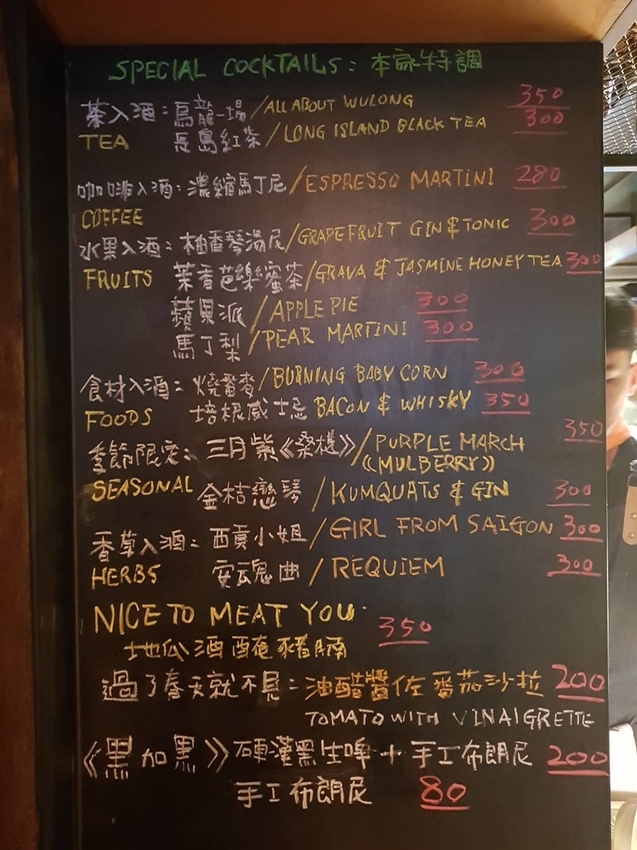 SPECIAL COCKTAILS: 本家特調
茶入酒: 烏龍一場/ALL ABOUT WULONG 350
TEA 長島紅茶/LONG ISLAND BLACK TEA 300
咖啡入酒: 濃縮馬丁尼/ESPRESSO MARTINI 280
COFFEE
水果入酒: 柚香琴湯尼/GRAPEFRUIT GIN & TONIC 300
FRUITS 茉香芭樂蜜茶/GRAVA & JASMINE HONEY TEA 300
蘋果派/APPLE PIE 300
馬丁梨/PEAR MARTINI 300
食材入酒: 燒番麥/BURNING BABY CORN 300
FOODS 培根威士忌 BACON & WHISKY 350
季節限定: 三月紫《桑椹》/PURPLE MARCH 350
《MULBERRY》
SEASONAL 金桔戀琴/KUMQUATS & GIN 300
香草入酒: 西貢小姐/GIRL FROM SAIGON 300
HERBS 安魂曲/REQUIEM 300
NICE TO MEAT YOU 350
地瓜酒醃豬腩
過了春天就不見: 油醋醬佐番茄沙拉 200
TOMATO WITH VINAIGRETTE
《黑加黑》硬漢黑生啤+手工布朗尼 200
手工布朗尼 80